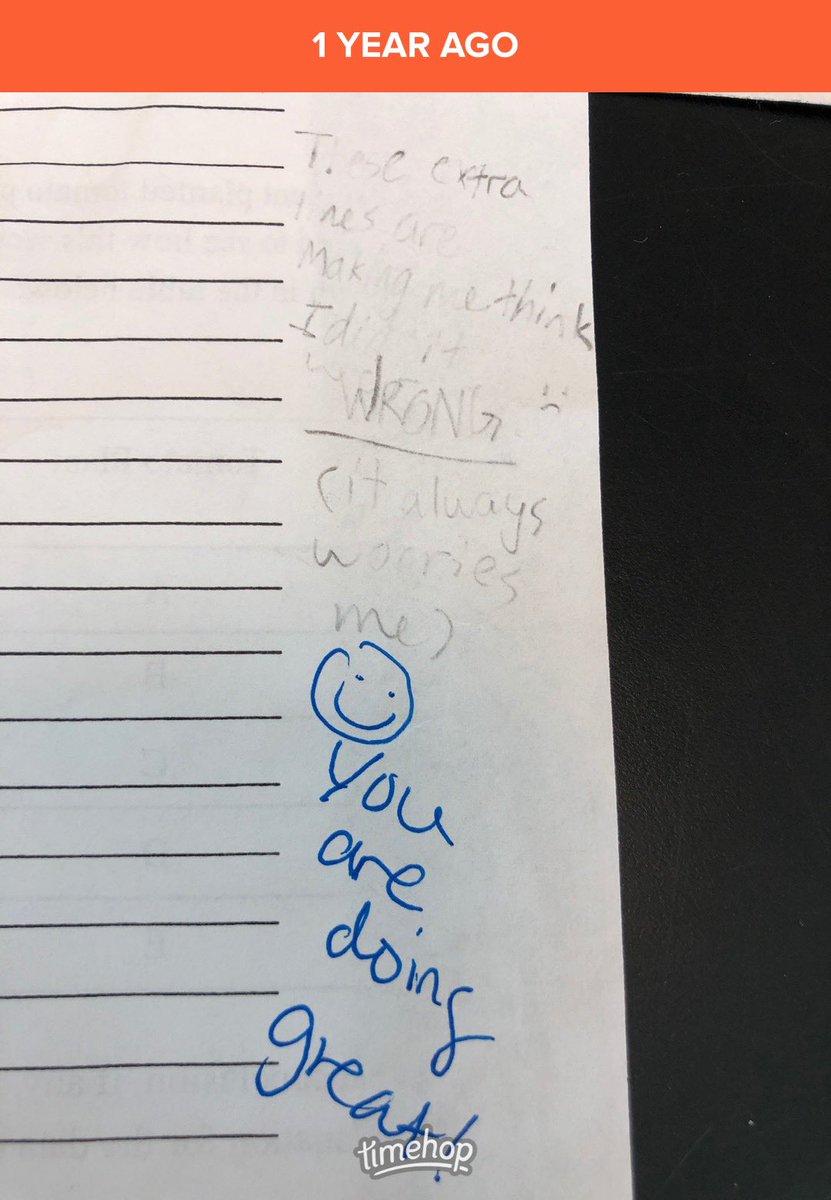 1 YEAR AGO
These extra
lines are
Making me think
I did it
WRONG :(
(it always
worries
me)
You
are
doing
great!
timehop